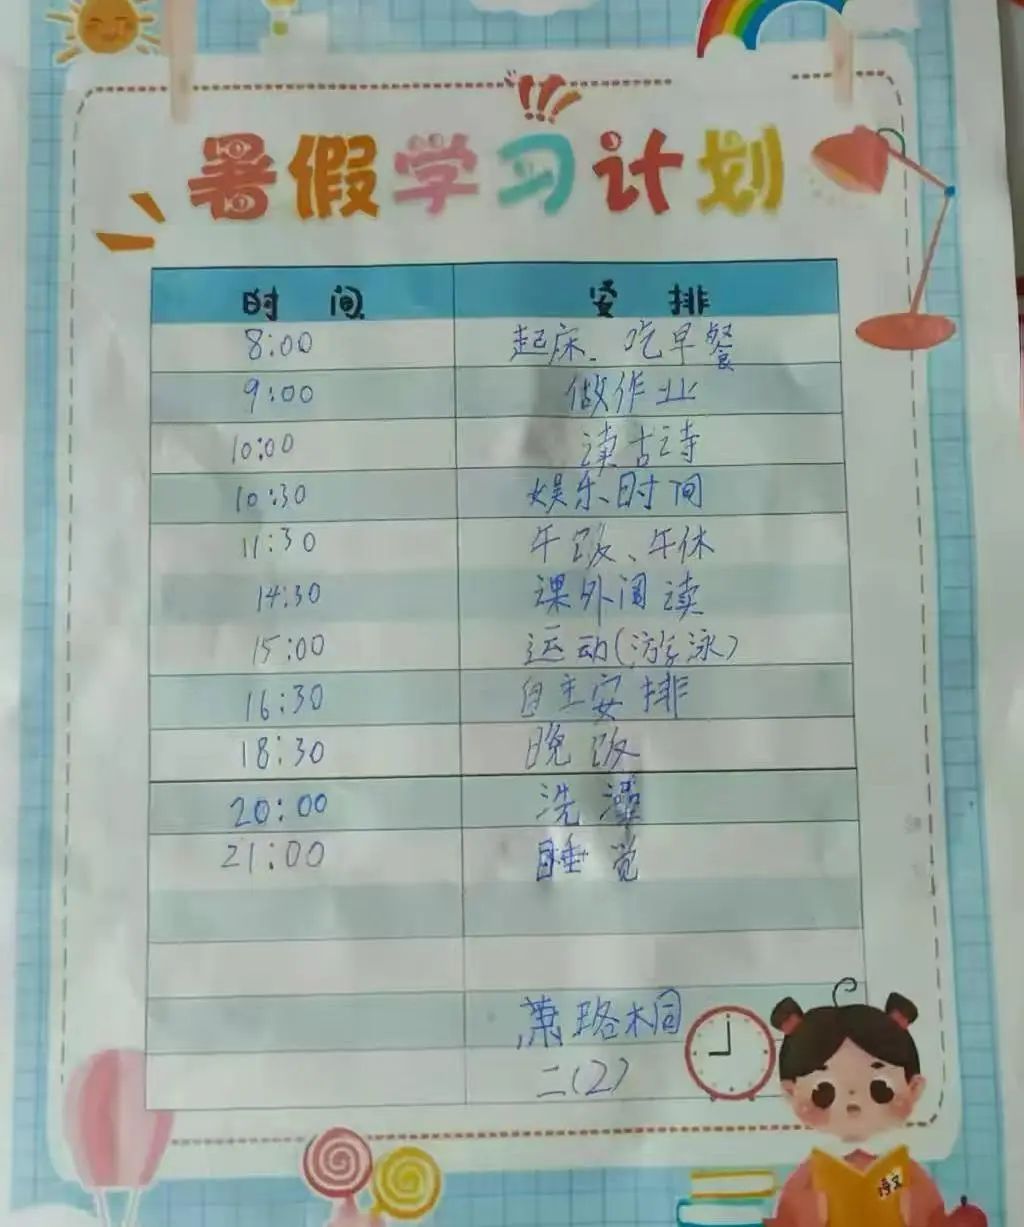 暑假学习计划
时间 安排
8:00 起床、吃早餐
9:00 做作业
10:00 读古诗
10:30 娱乐时间
11:30 午饭、午休
14:30 课外阅读
15:00 运动(游泳)
16:30 自主安排
18:30 晚饭
20:00 洗澡
21:00 睡觉
萧珞桐
二(2)
语文